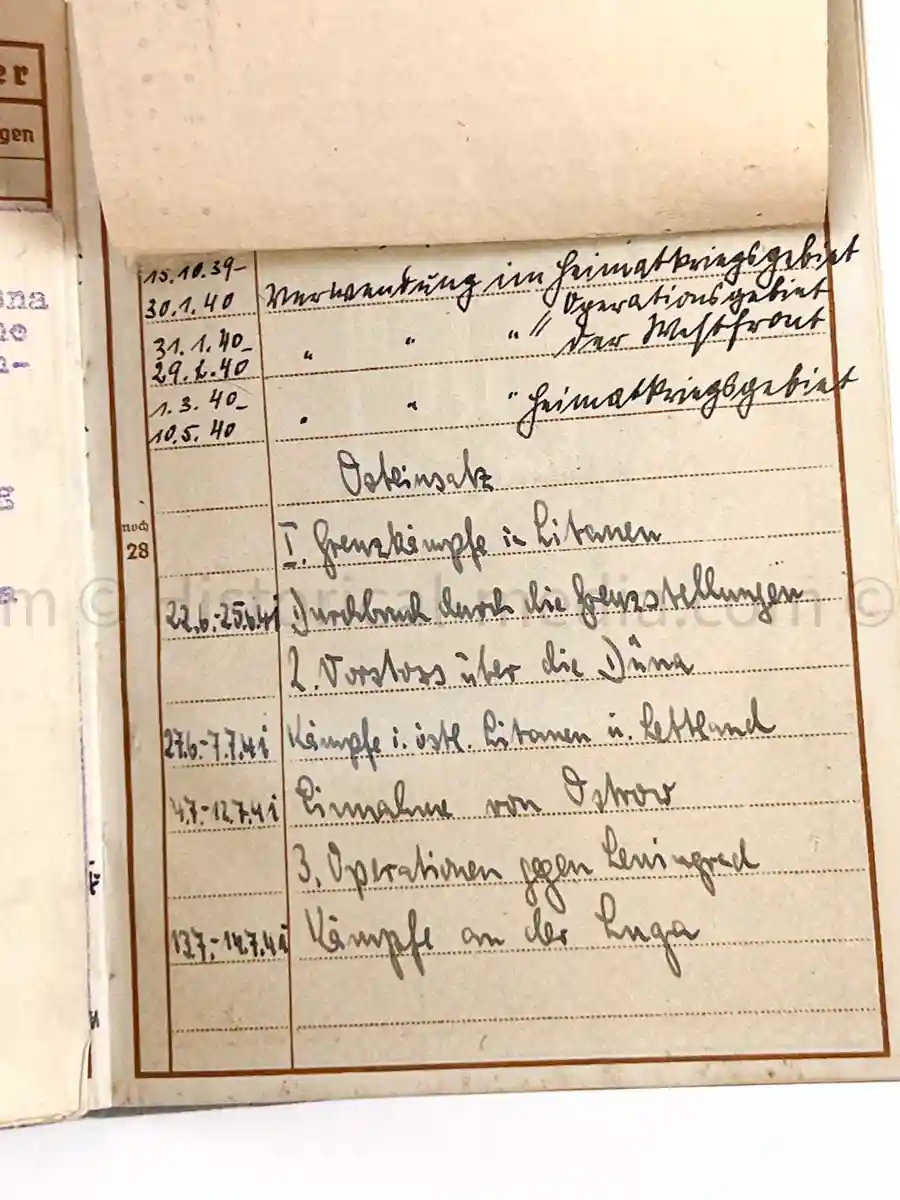 er
gen
ona
no
n-
15.10.39-
30.1.40 Verwendung im Heimatkriegsgebiet
31.1.40- " " " " Operationsgebiet
29.2.40 der Westfront
1.3.40-
10.5.40 " " " Heimatkriegsgebiet
Osteinsatz
noch
28
I. Grenzkämpfe in Litauen
22.6.-25.6.41 Durchbruch durch die Grenzstellungen
2. Vorstoss über die Düna
27.6.-7.7.41 Kämpfe i. östl. Litauen u. Lettland
4.7.-12.7.41 Einnahme von Ostrow
3. Operationen gegen Leningrad
13.7.-14.7.41 Kämpfe an der Luga
m © historicalmedia.com ©